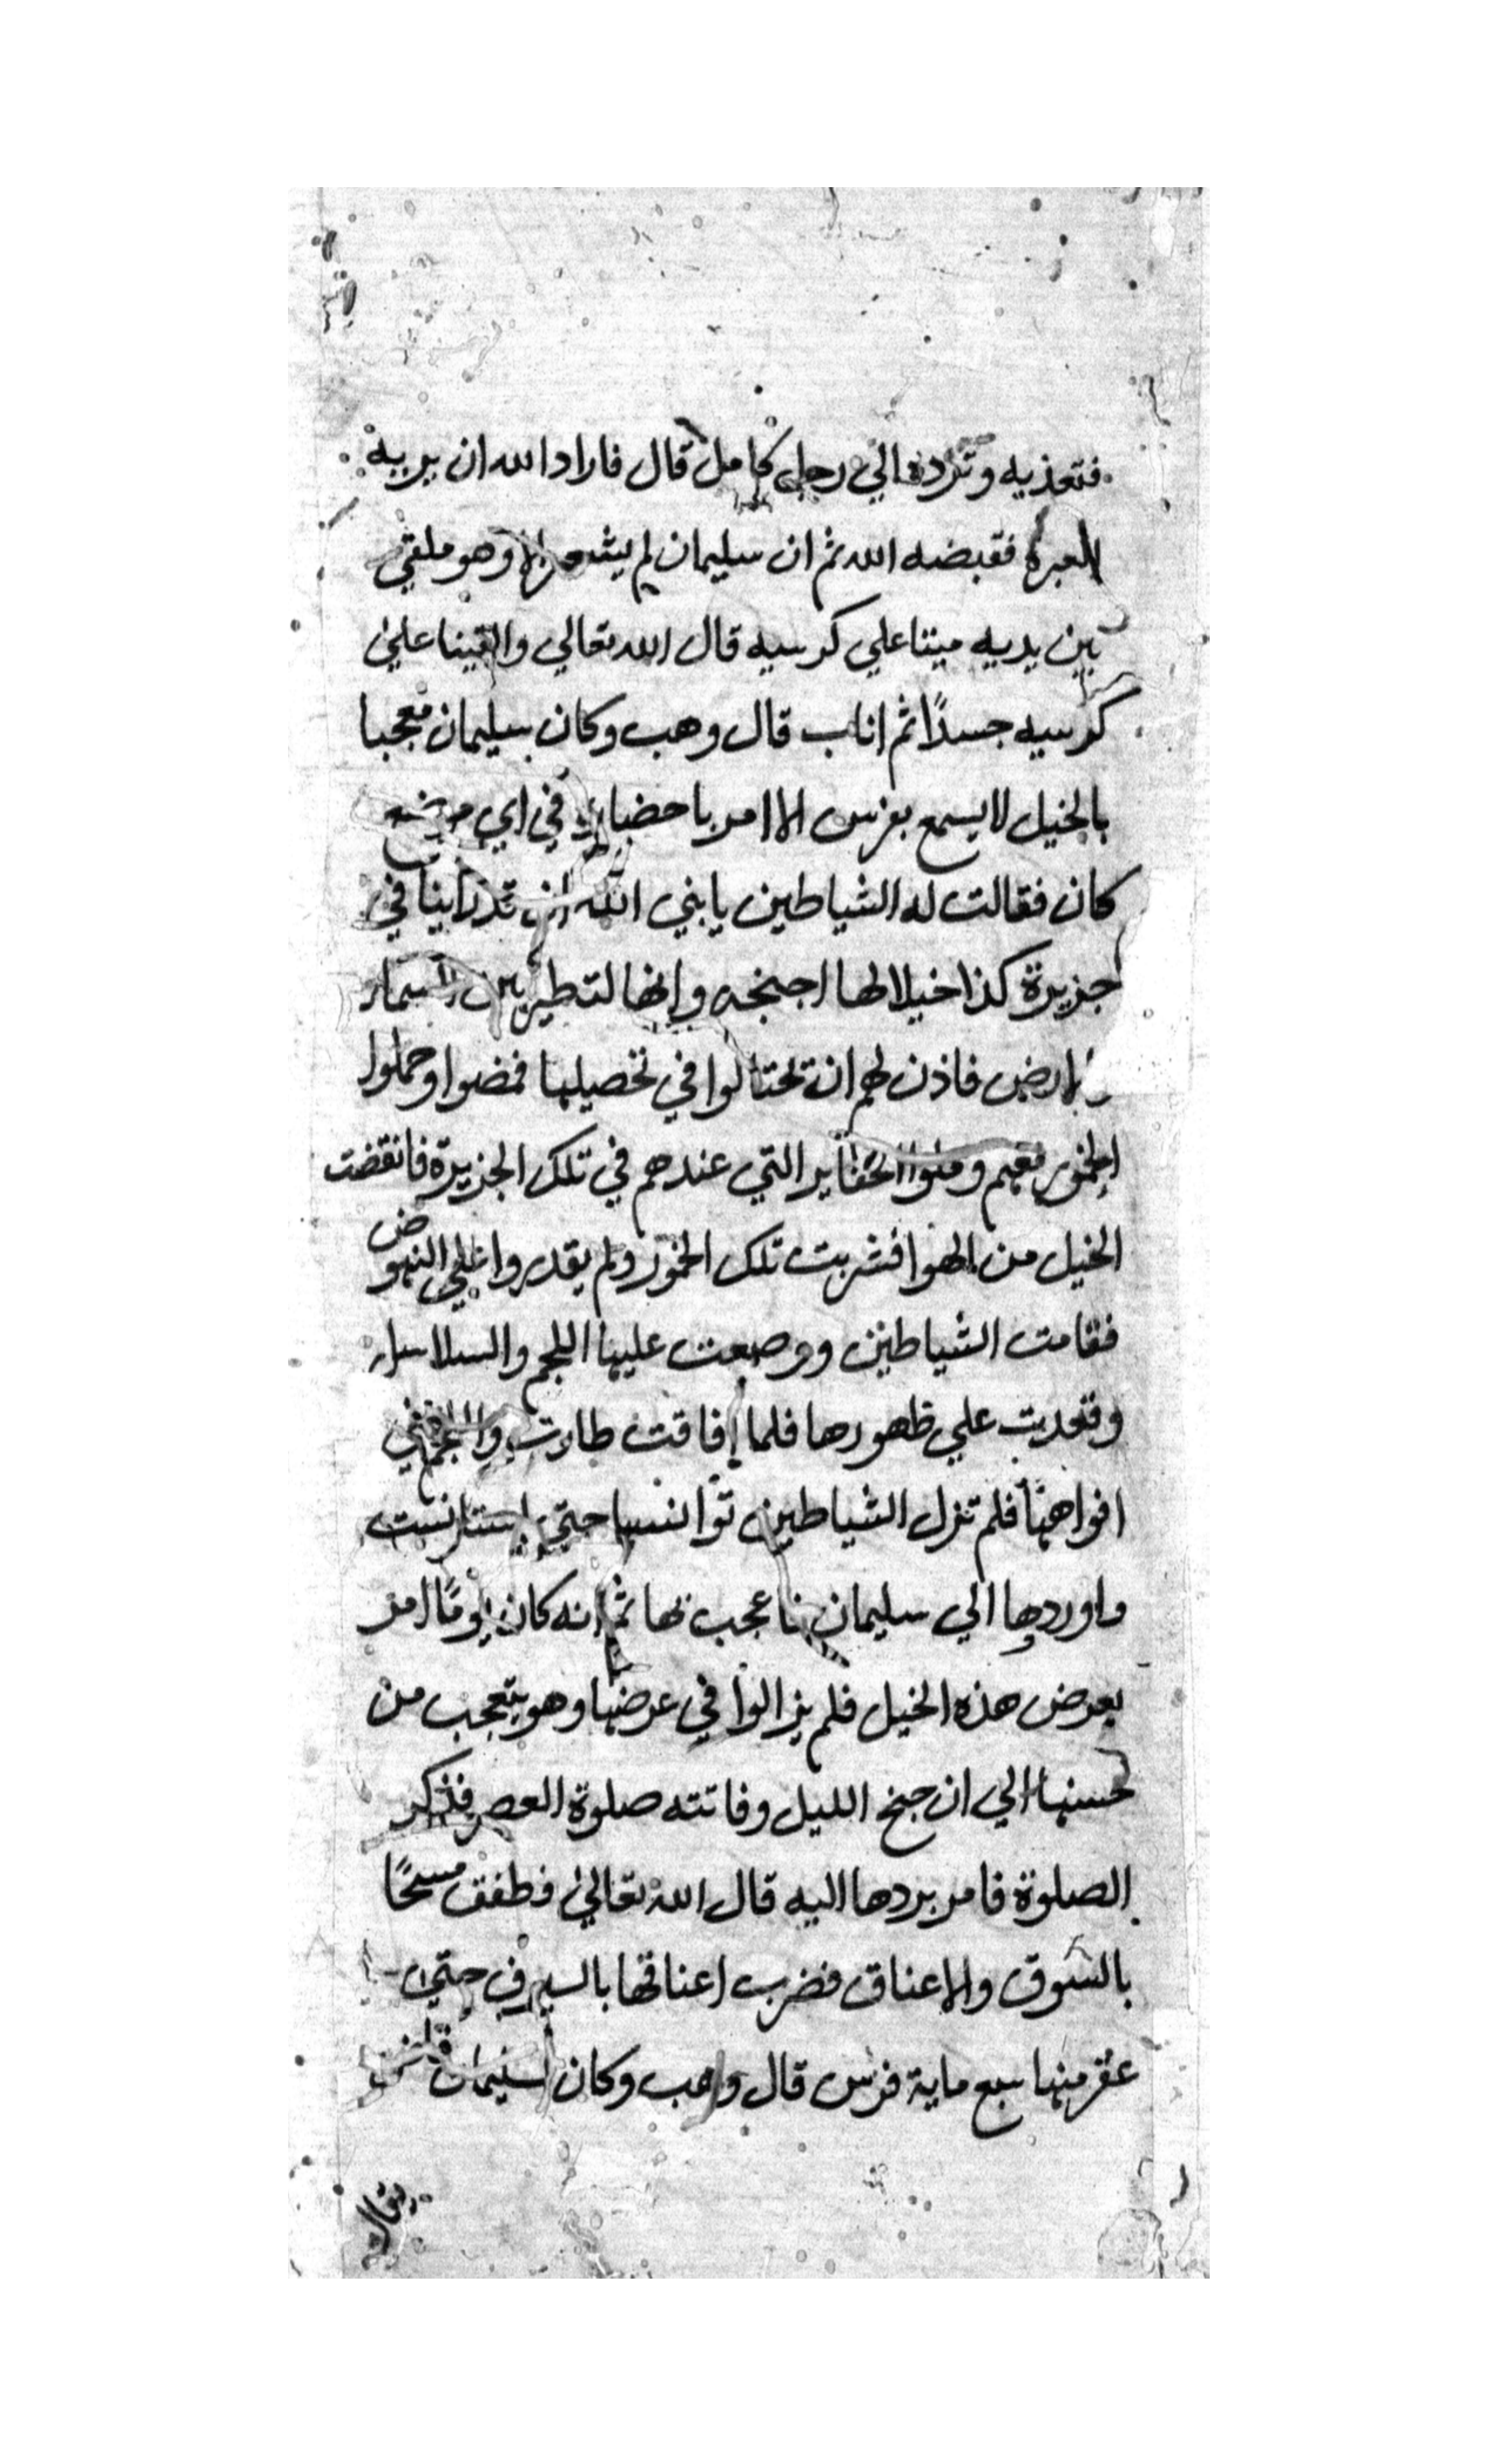 فتغذيه وترده الي رجل كامل قال فاراد الله ان يريه
العبرة فقبضه الله ثم ان سليمان لم يشعر الا وهو ملقي
بين يديه ميتا علي كرسيه قال الله تعالي والقينا علي
كرسيه جسدًا ثم اناب قال وهب وكان سليمان معجبا
بالخيل لا يسمع بفرس الا امر باحضاره في اي موضع
كان فقالت له الشياطين يا نبي الله قد راينا في
جزيرة كذا خيلا لها اجنحه وانها لتطير بين السماء
والارض فاذن لهم ان تحتالوا في تحصيلها فمضوا وحملوا
الخمور معهم وملوا الحفاير التي عندهم في تلك الجزيرة فانقضت
الخيل من الهوا فشربت تلك الخمور ولم يقدروا علي النهوض
فقامت الشياطين ووضعت عليها اللجم والسلاسل
وقعدت علي ظهورها فلما افاقت طارت واللجم في
افواهها فلم تزل الشياطين توانسها حتي استانست
واوردها الي سليمان فاعجب بها ثم انه كان يومًا امر
بعرض هذه الخيل فلم يزالوا في عرضها وهو يتعجب من
حسنها الي ان جنح الليل وفاتته صلوة العصر فذكر
الصلوة فامر بردها اليه قال الله تعالي فطفق مسحًا
بالسوق والاعناق فضرب اعناقها بالسيوف حتي
عقر منها سبع ماية فرس قال وهب وكان لسليمان
يقال